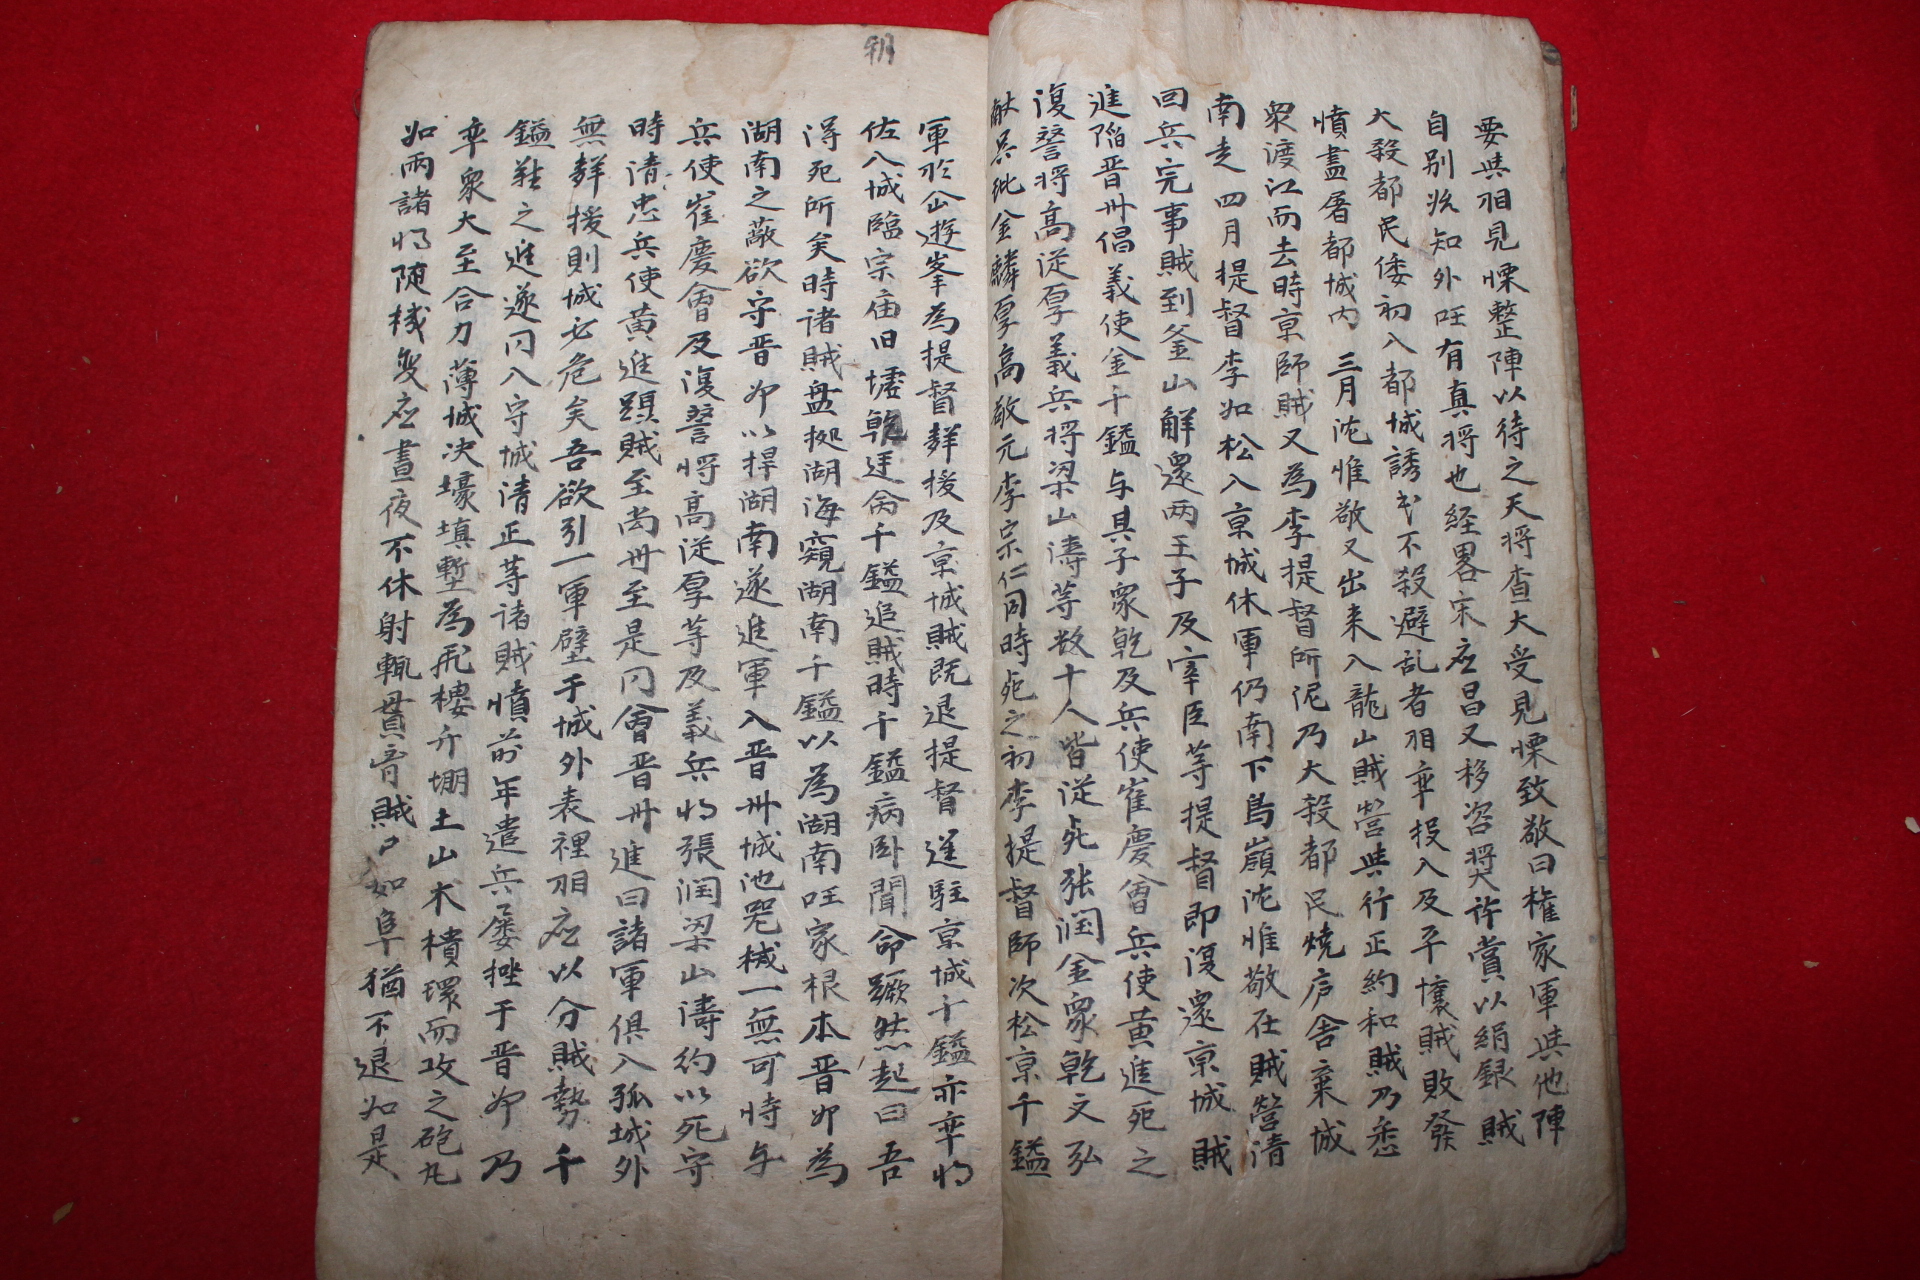 要與相見慄整陣以待之天將查大受見慄致敬曰權家軍與他陣
自別ివ知外国有真將也經畧宋应昌又移咨奬許賞以絹銀賊
大殺都民倭初入都城誘民不殺避乱者相率投入及平壤賊敗發
憤盡屠都城内三月沈惟敬又出来入龍山賊營與行正約和賊乃悉
衆渡江而去時京師賊又為李提督所泥乃大殺都民燒庐舍棄城
南走四月提督李如松入京城休軍仍南下鳥嶺沈惟敬在賊營請
回兵完事賊到釜山解還两王子及宰臣等提督即復還京城賊
進陷晋州倡義使金千鎰与其子象乾及兵使崔慶會兵使黄進死之
復讐將高従厚義兵將梁山濤等数十人皆従死张润金象乾文弘
献吴玭金麟厚高敬元李宗仁同時死之初李提督師次松京千鎰
軍於仙遊峯為提督犄援及京城賊既退提督進駐京城千鎰亦率将
佐入城臨宗庙旧墟乾廷命千鎰追賊時千鎰病卧聞命蹶然起曰吾
得死所矣時諸賊盘拠湖海窺湖南千鎰以為湖南国家根本晋州為
湖南之蔽欲守晋州以捍湖南遂進軍入晋州城池器械一無可恃与
兵使崔慶會及復讐將高従厚等及義兵将張润梁山濤約以死守
時清忠兵使黄進躡賊至尚州至是同會晋州進曰諸軍俱入孤城外
無犄援則城必危矣吾欲引一軍壁于城外表裡相应以分賊勢千
鎰難之進遂同入守城清正等诸賊憤前年遣兵屡挫于晋州乃
率衆大至合力薄城决壕填塹為飛樓升堋土山木樻環而攻之砲丸
如雨諸将随機変应晝夜不休射輒貫音賊尸如阜猶不退如是